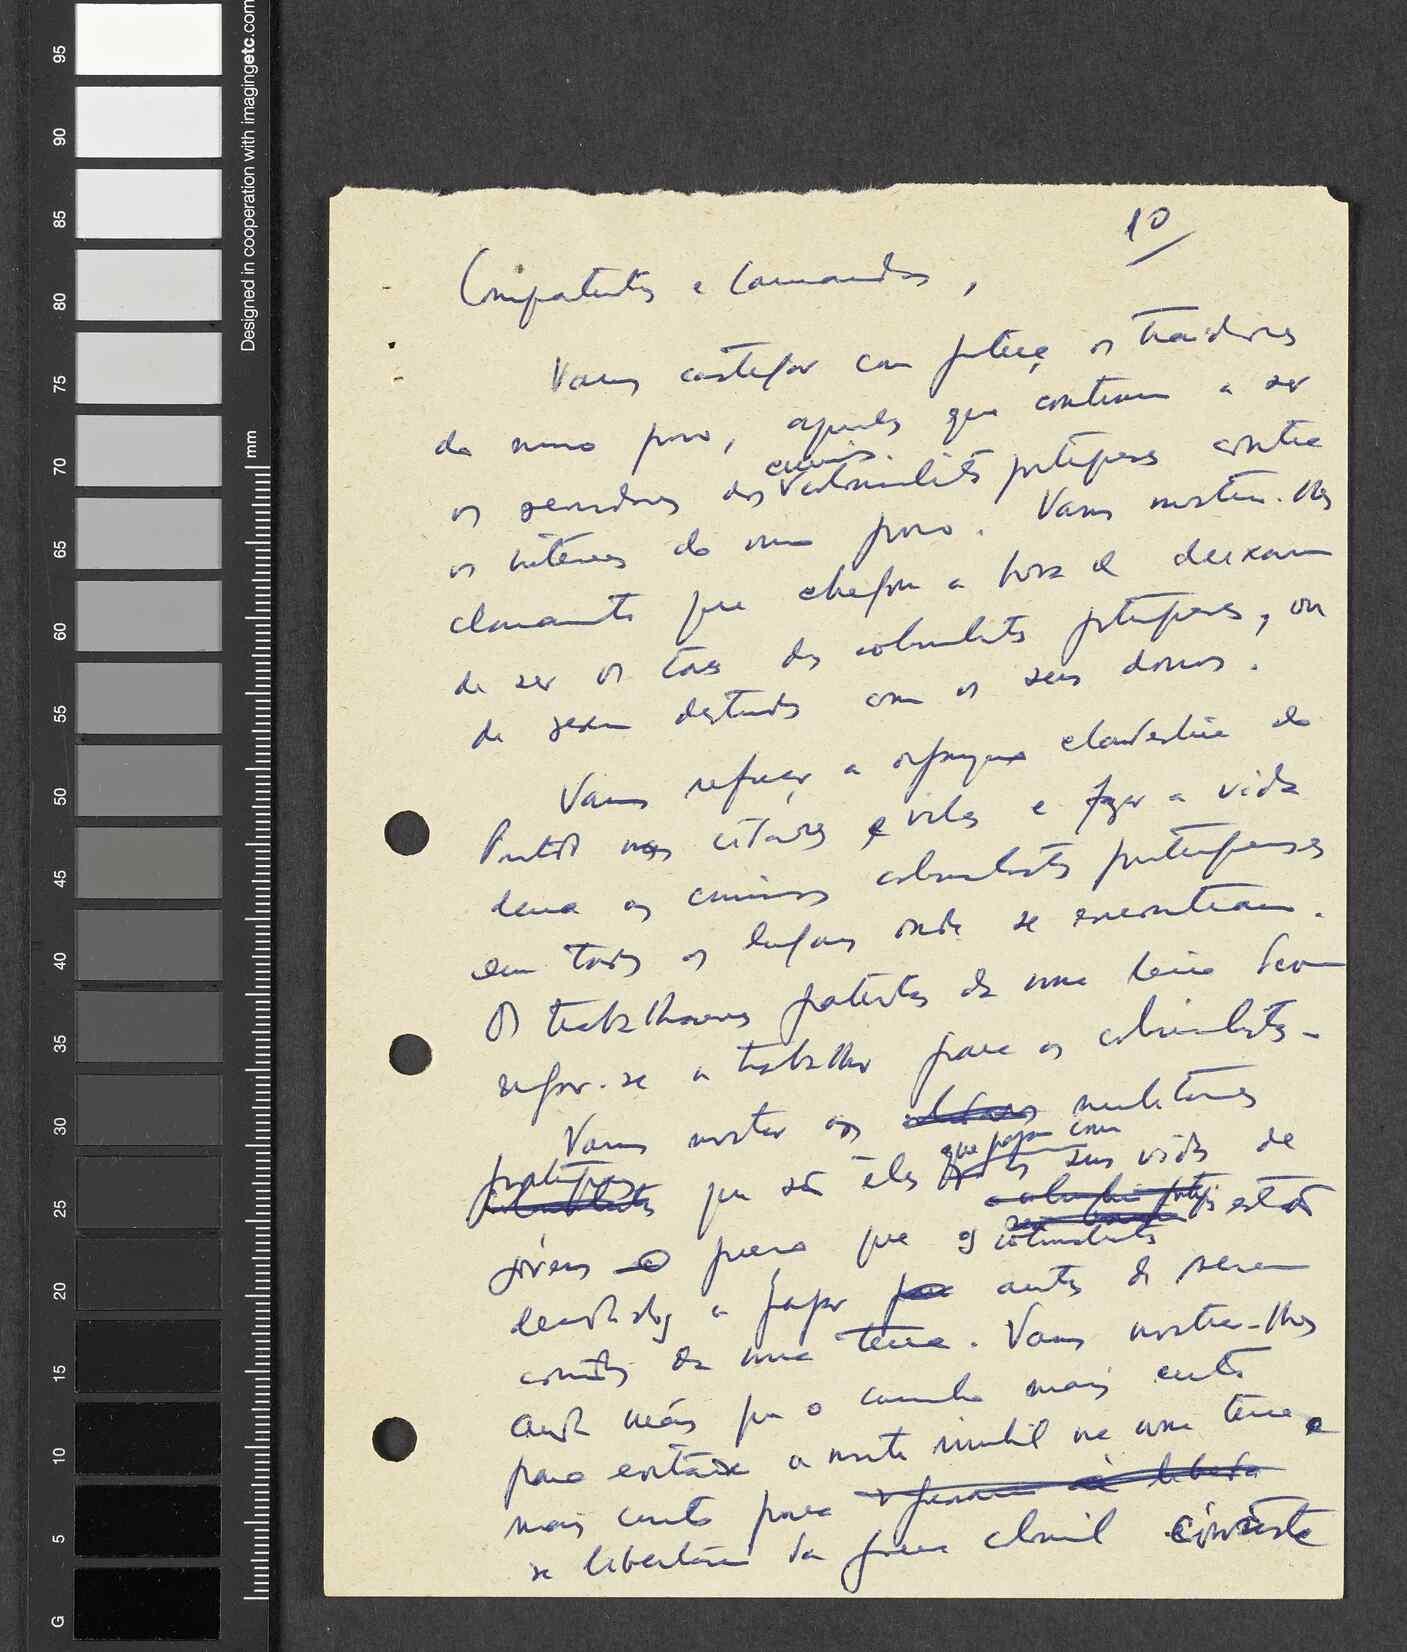 10
Compatriotas e Camaradas,
Vamos castigar com fôrça os traidores
do nosso povo, aqueles que continuam a ser
os servidores dos
criminosos
colonialistas portugueses contra
os interesses do nosso povo. Vamos mostrar-lhes
claramente que chegou a hora de deixarem
de ser os cães dos colonialistas portugueses, ou
de serem destruídos com os seus donos.
Vamos reforçar a organização clandestina do
Partido nas cidades e vilas e fazer a vida
dura aos criminosos colonialistas portugueses
em todos os lugares onde se encontram.
Os trabalhadores patriotas da nossa terra devem
negar-se a trabalhar para os colonialistas.
Vamos mostrar aos militares
portugueses que são êles
que pagam com
as suas vidas de
jóvens a guerra que os
colonialistas
estão
a fazer antes de serem
corridos da nossa terra. Vamos mostrar-lhes
ainda mais que o caminho mais certo
para evitarem a morte inútil na nossa terra e
mais certo para
se libertarem da guerra colonial consiste
95
90
85
80
75
70
65
60
55
50
45
40
35
30
25
20
15
10
5
G
mm
Designed in cooperation with imagingetc.com